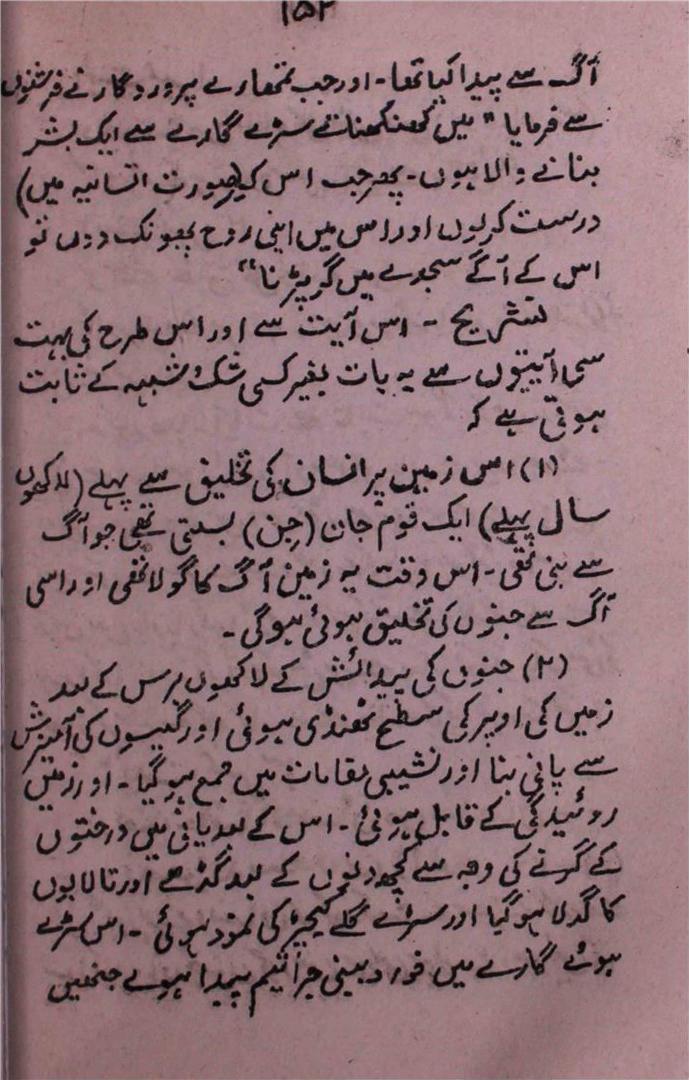 ۱۵۲
آگ سے پیدا کیا تھا۔ اور جب تمھارے پروردگار نے فرشتوں
سے فرمایا "میں کھنکھناتے سڑے گارے سے ایک بشر
بنانے والا ہوں۔ پھر جب اس کی (صورت انسانیہ میں)
درست کرلوں اور اس میں اپنی روح پھونک دوں تو
اس کے آگے سجدے میں گر پڑنا"
تشریح - اس آیت سے اور اس طرح کی بہت
سی آیتوں سے یہ بات بغیر کسی شک و شبہہ کے ثابت
ہوتی ہے کہ
(۱) اس زمین پر انسان کی تخلیق سے پہلے (لاکھوں
سال پہلے) ایک قوم جان (جِن) بستی تھی جو آگ
سے بنی تھی۔ اس وقت یہ زمین آگ کا گولا تھی اور اسی
آگ سے جنوں کی تخلیق ہوئی ہوگی۔
(۲) جنوں کی پیدائش کے لاکھوں برس کے بعد
زمیں کی اوپر کی سطح ٹھنڈی ہوئی اور گیسوں کی آمیزش
سے پانی بنا اور نشیبی مقامات میں جمع ہو گیا۔ اور زمیں
روئیدگی کے قابل ہوئی۔ اس کے بعد پانی میں درختوں
کے گرنے کی وجہ سے کچھ دنوں کے بعد گڈھے اور تالابوں
کا گدلا ہو گیا اور سڑے گلے کیچڑ کی نمود ہوئی۔ اس سڑے
ہوئے گارے میں خورد بینی جراثیم پیدا ہوے جنھیں